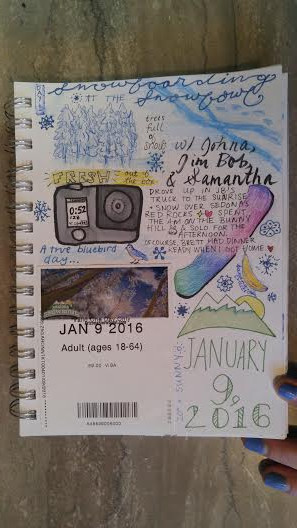 Snowboarding
@ AT THE
Snowbowl
trees
full
of
snow
w/ Johna,
Jim Bob,
& Samantha
FRESH out o' the box
0:52
DROVE UP IN JB'S
TRUCK TO THE SUNRISE
+ SNOW OVER SEDONA'S
RED ROCKS SPENT
THE AM ON THE BUNNY
HILL & A SOLO FOR THE
AFTERNOON.
OF COURSE, BRETT HAD DINNER
READY WHEN I GOT HOME
A true bluebird
day...
JAN 9 2016
Adult (ages 18-64)
VISA
JANUARY
9,
2016